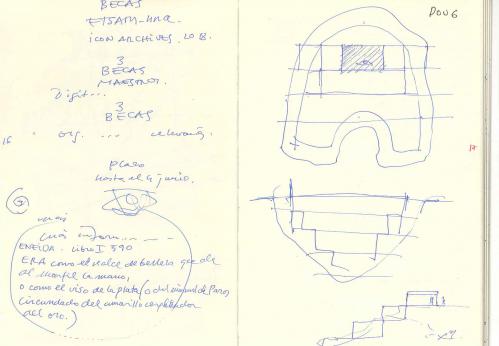 BECAS
ICON ARCHIVES. 2018.
3
BECAS
MAESTROS.
Digit...
3
BECAS
16
org. ...
PLAZO
hasta el 4 junio.
más
ENEIDA. Libro I 590
ERA como el realce de belleza que da
al marfil la mano,
o como el viso de la plata (o del mármol de Paros
circundado del amarillo resplandor
del oro.)
DOUG
17